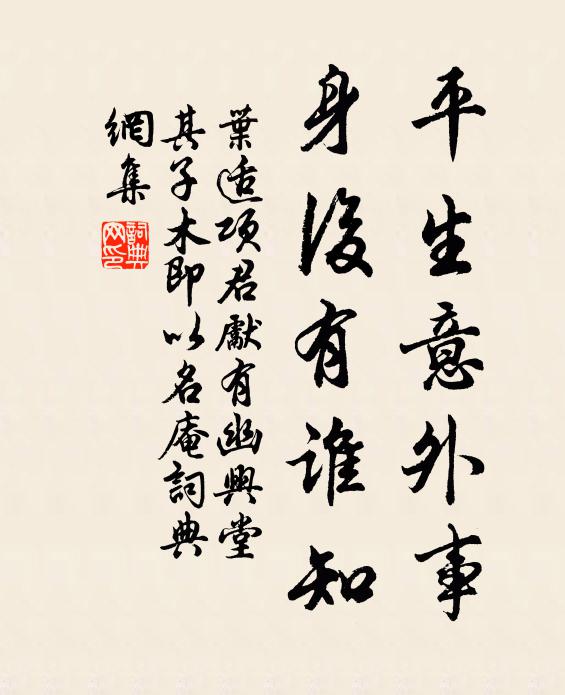 平生意外事
身後有誰知
葉適項君獻有幽興堂
其子木即以名庵詞典
網集
詞典网印